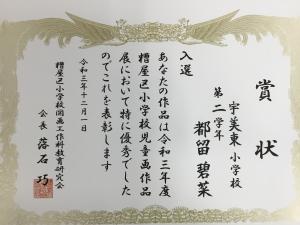 賞状
宇美東小学校
第二学年
都留碧菜
入選
あなたの作品は令和三年度
糟屋区小学校児童画作品
展において特に優秀でした
のでこれを表彰します
令和三年十二月一日
糟屋区小学校図画工作科教育研究会
会長 落石巧